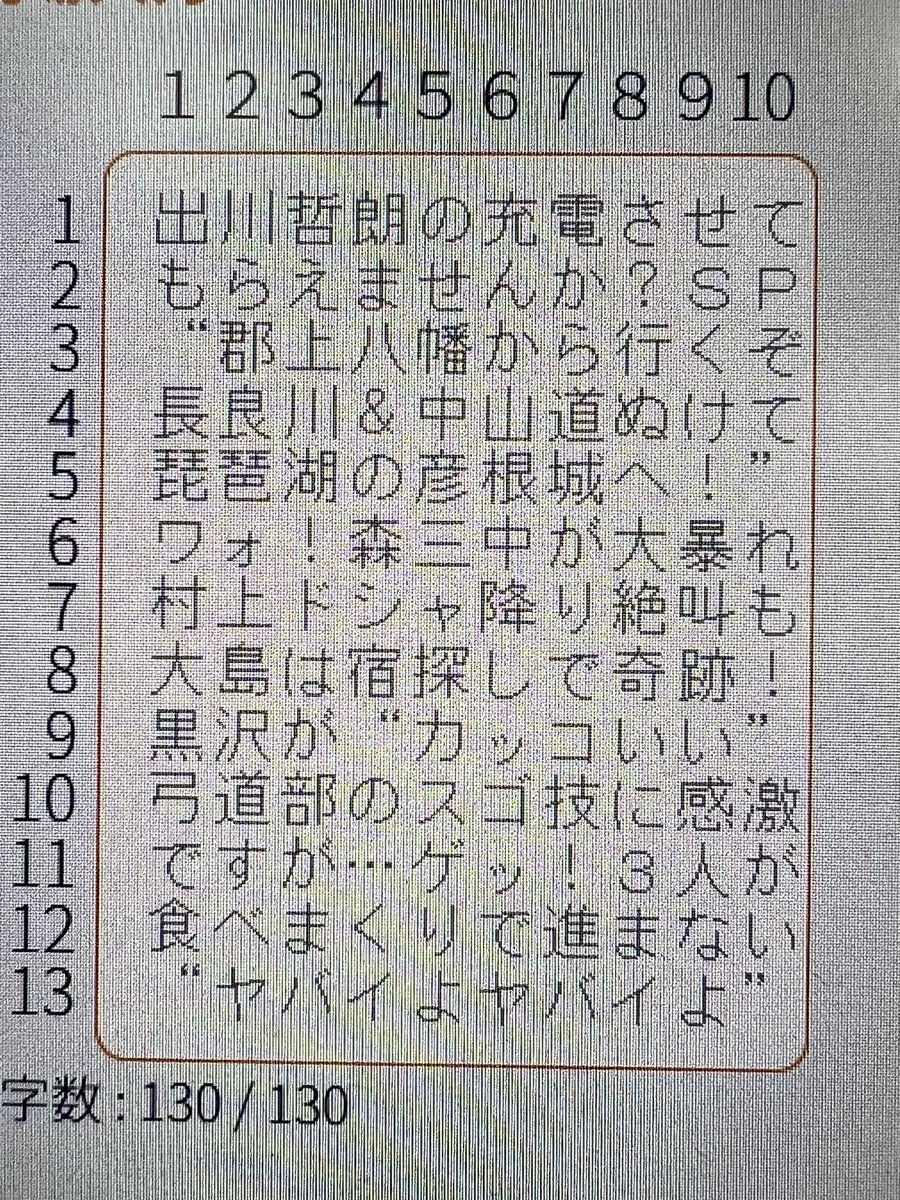 1 2 3 4 5 6 7 8 9 10
1 出川哲朗の充電させて
2 もらえませんか？ＳＰ
3 “郡上八幡から行くぞ
4 長良川＆中山道ぬけて
5 琵琶湖の彦根城へ！”
6 ワォ！森三中が大暴れ
7 村上ドシャ降り絶叫も
8 大島は宿探しで奇跡！
9 黒沢が“カッコいい”
10 弓道部のスゴ技に感激
11 ですが…ゲッ！３人が
12 食べまくりで進まない
13 “ヤバイよヤバイよ”
字数 : 130 / 130